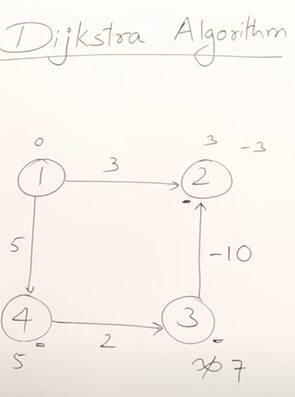 Dijkstra Algorithm
0
3 -3
1
3
2
5
-10
4
2
3
5
7